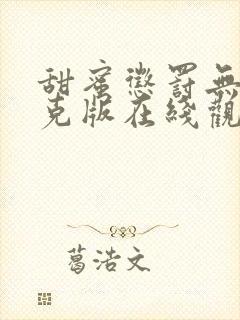 甜蜜懲罰無
克版在綫觀
葛浩文